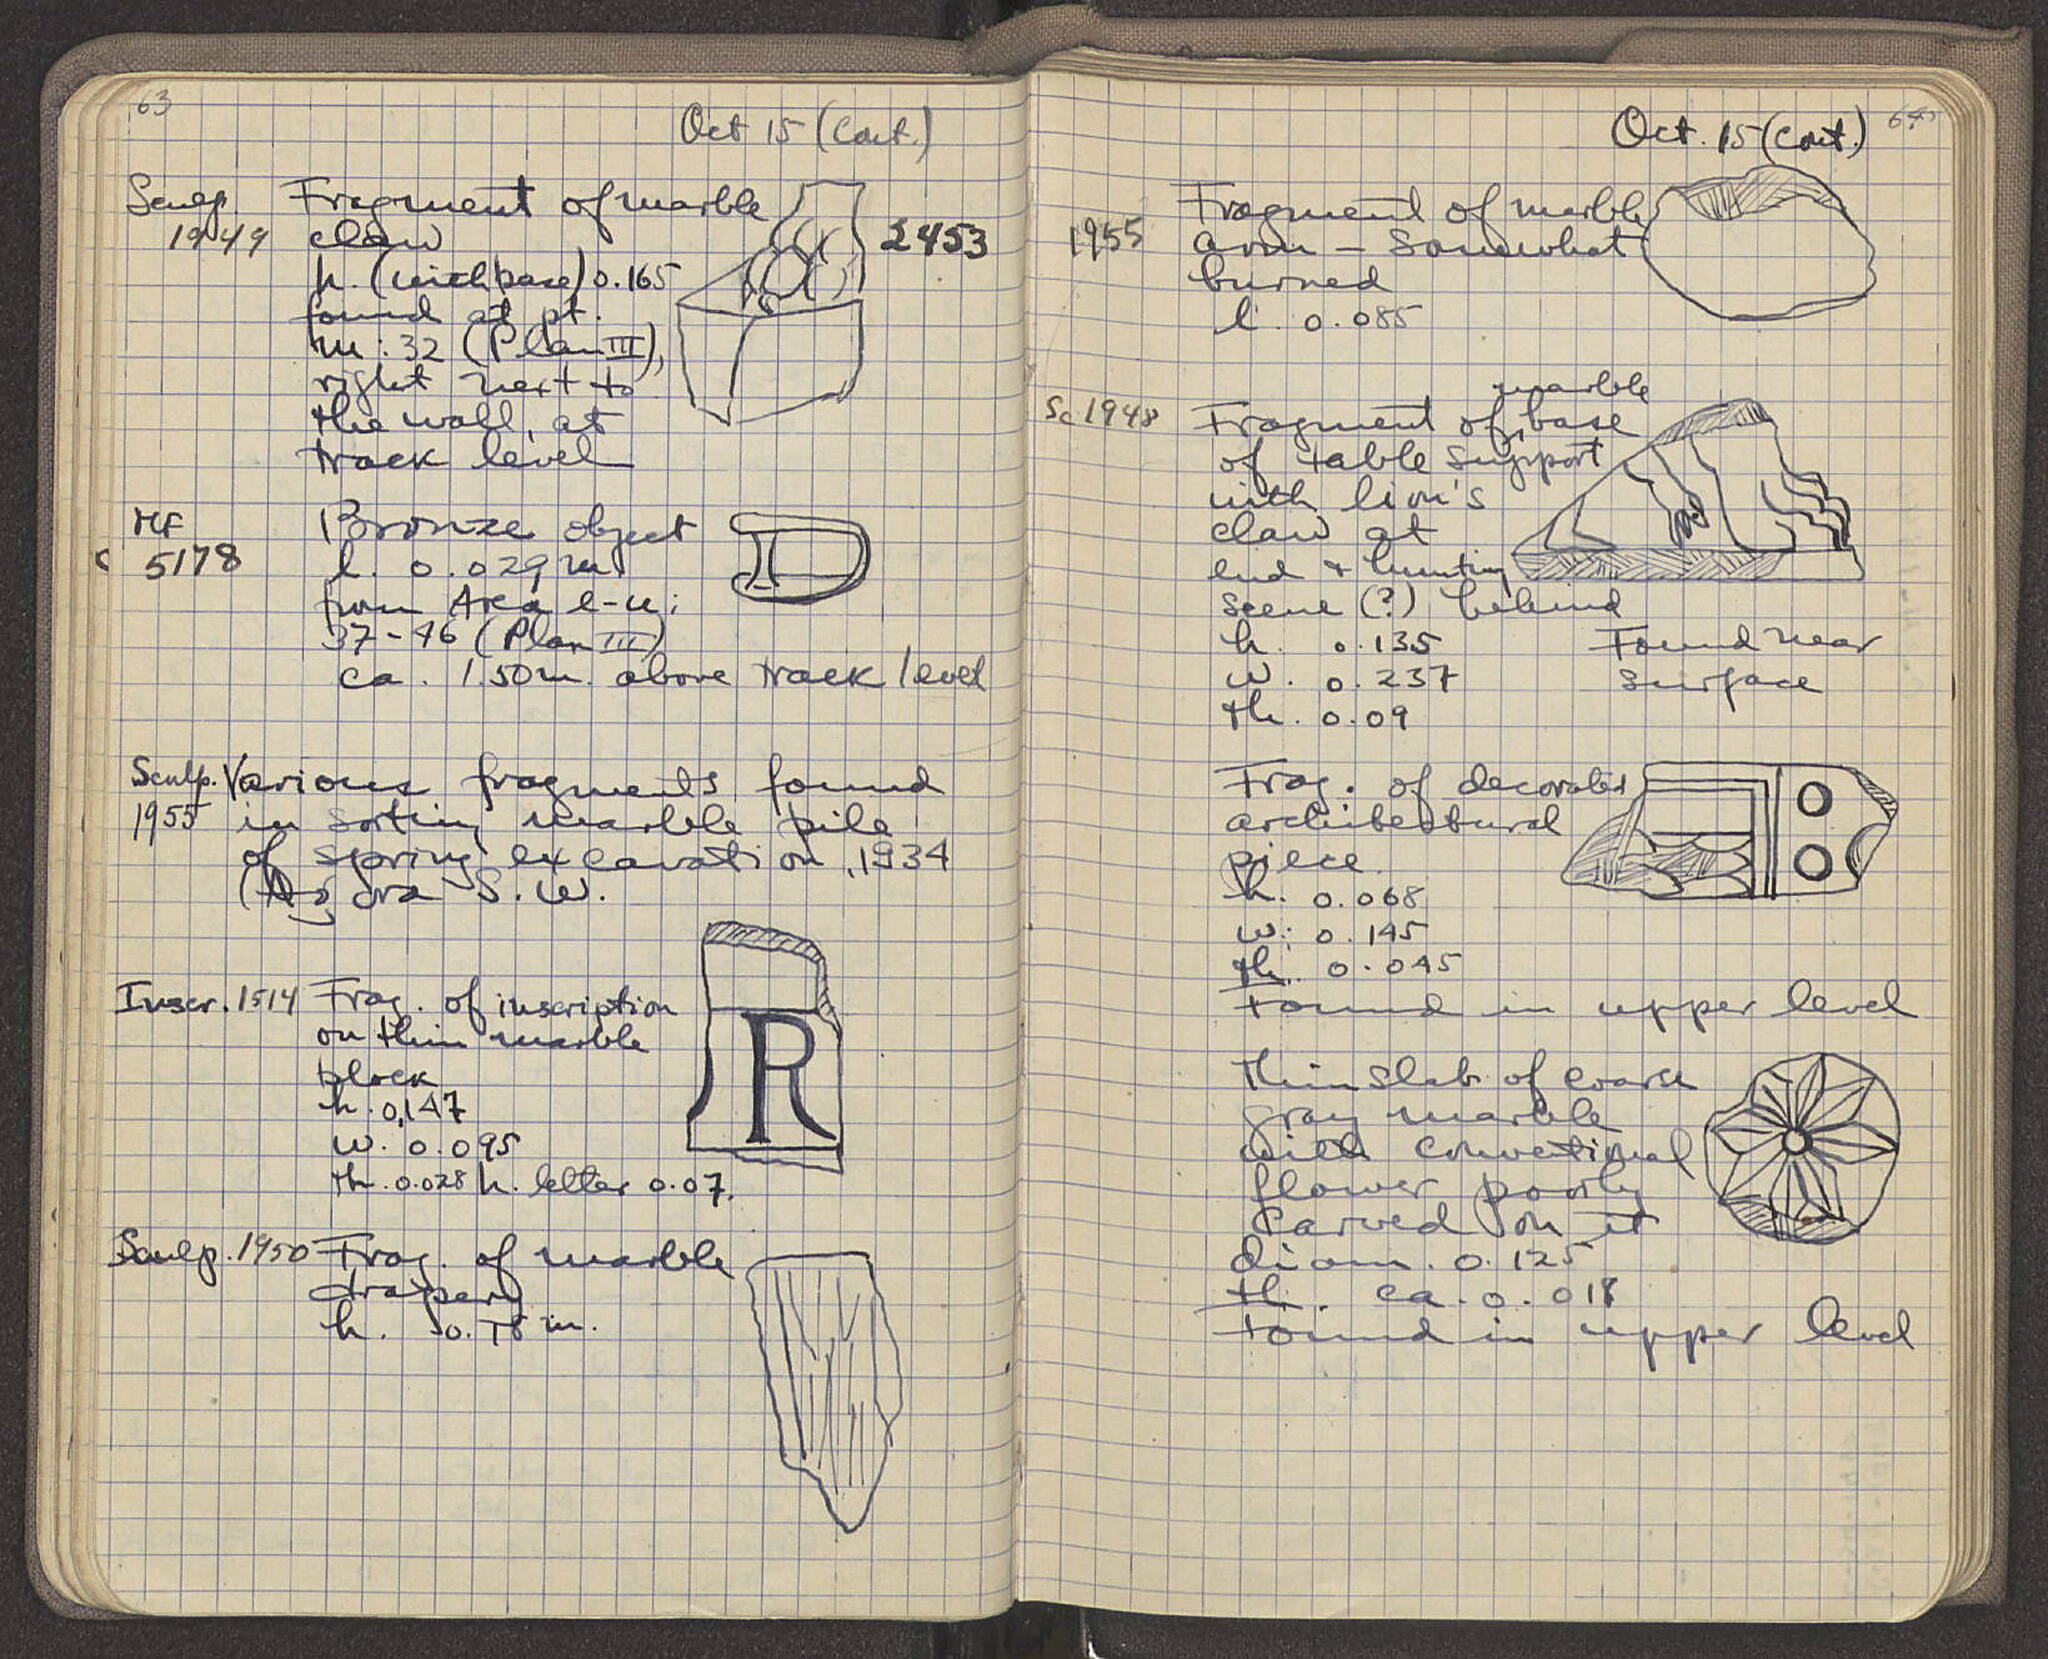 63
Oct 15 (Cont.)
Sculp. 1949
Fragment of marble
claw
h. (with base) 0.165
found at pt.
m:32 (Plan III),
right next to
the wall, at
track level
2453
MF
5178
Bronze object
l. 0.029 m
from Area l-u;
37-46 (Plan III)
ca. 1.50 m. above track level
Sculp.
1955
Various fragments found
in sorting marble pile
of spring excavation, 1934
(Agora S.W.
Inscr. 1514
Frag. of inscription
on thin marble
block
h. 0.147
w. 0.095
th. 0.028 h. letter 0.07.
R
Sculp. 1950
Frag. of marble
drapery
h. 0.18 m.
64
Oct. 15 (Cont.)
1955
Fragment of marble
arm – Somewhat
burned
l. 0.085
Sc 1948
marble
Fragment of base
of table support
with lion's
claw at
end + hunting
scene (?) behind
h. 0.135
w. 0.237
th. 0.09
Found near
surface
Frag. of decorated
architectural
piece
h. 0.068
w. 0.145
th. 0.045
Found in upper level
Thin slab of coarse
gray marble
with conventional
flower poorly
carved on it
diam. 0.125
th. ca. 0.018
Found in upper level